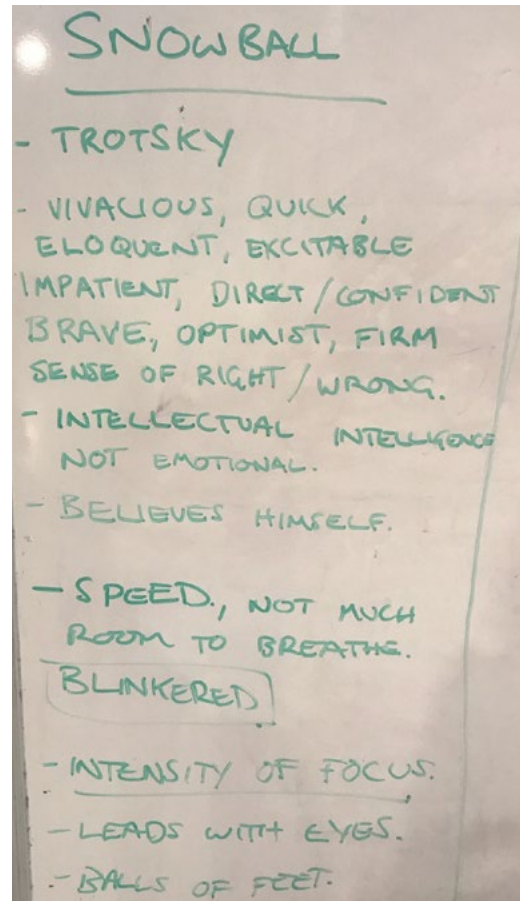 SNOWBALL
- TROTSKY
- VIVACIOUS, QUICK,
ELOQUENT, EXCITABLE
IMPATIENT, DIRECT/CONFIDENT
BRAVE, OPTIMIST, FIRM
SENSE OF RIGHT/WRONG.
- INTELLECTUAL INTELLIGENCE
NOT EMOTIONAL.
- BELIEVES HIMSELF.
- SPEED., NOT MUCH
ROOM TO BREATHE.
BLINKERED
- INTENSITY OF FOCUS.
- LEADS WITH EYES.
- BALLS OF FEET.